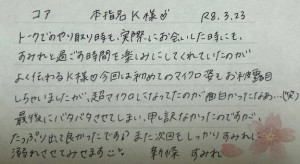 コア 本指名K様♡ R8.3.23
トークでのやり取り時も、実際にお会いした時にも、
すみれと過ごす時間を楽しみにしてくれていたのが
よく伝わるK様♡今回は初めてのマイクロ姿もお披露目
しちゃいましたが、超マイクロになってたのが面白かったなあ…(笑)
最後にバタバタさせてしまい、申し訳なかったのですが、
たっぷり出て良かったです♪また次回もしっかりすみれに
溺れさせてみせますこ♡ 新條 すみれ